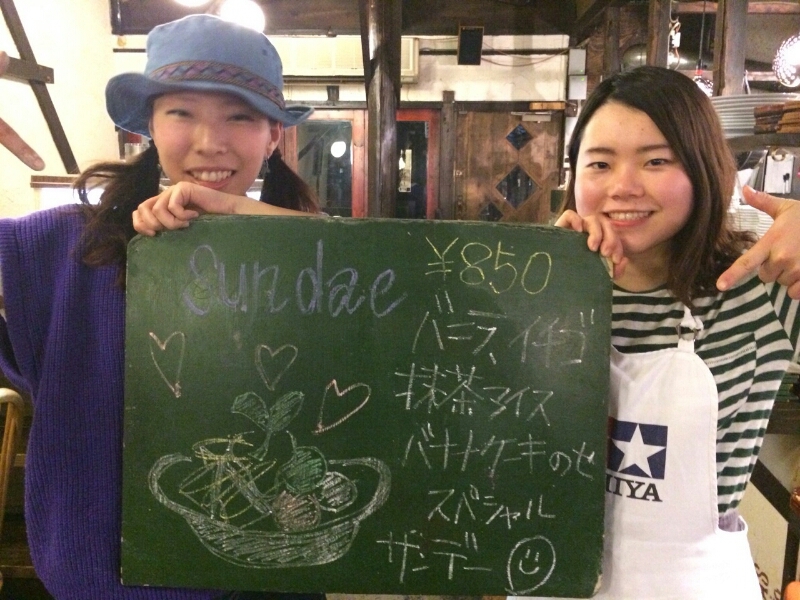 Sundae ¥850
バニラ イチゴ
抹茶アイス
バナナケーキのせ
スペシャル
サンデー
MIYA